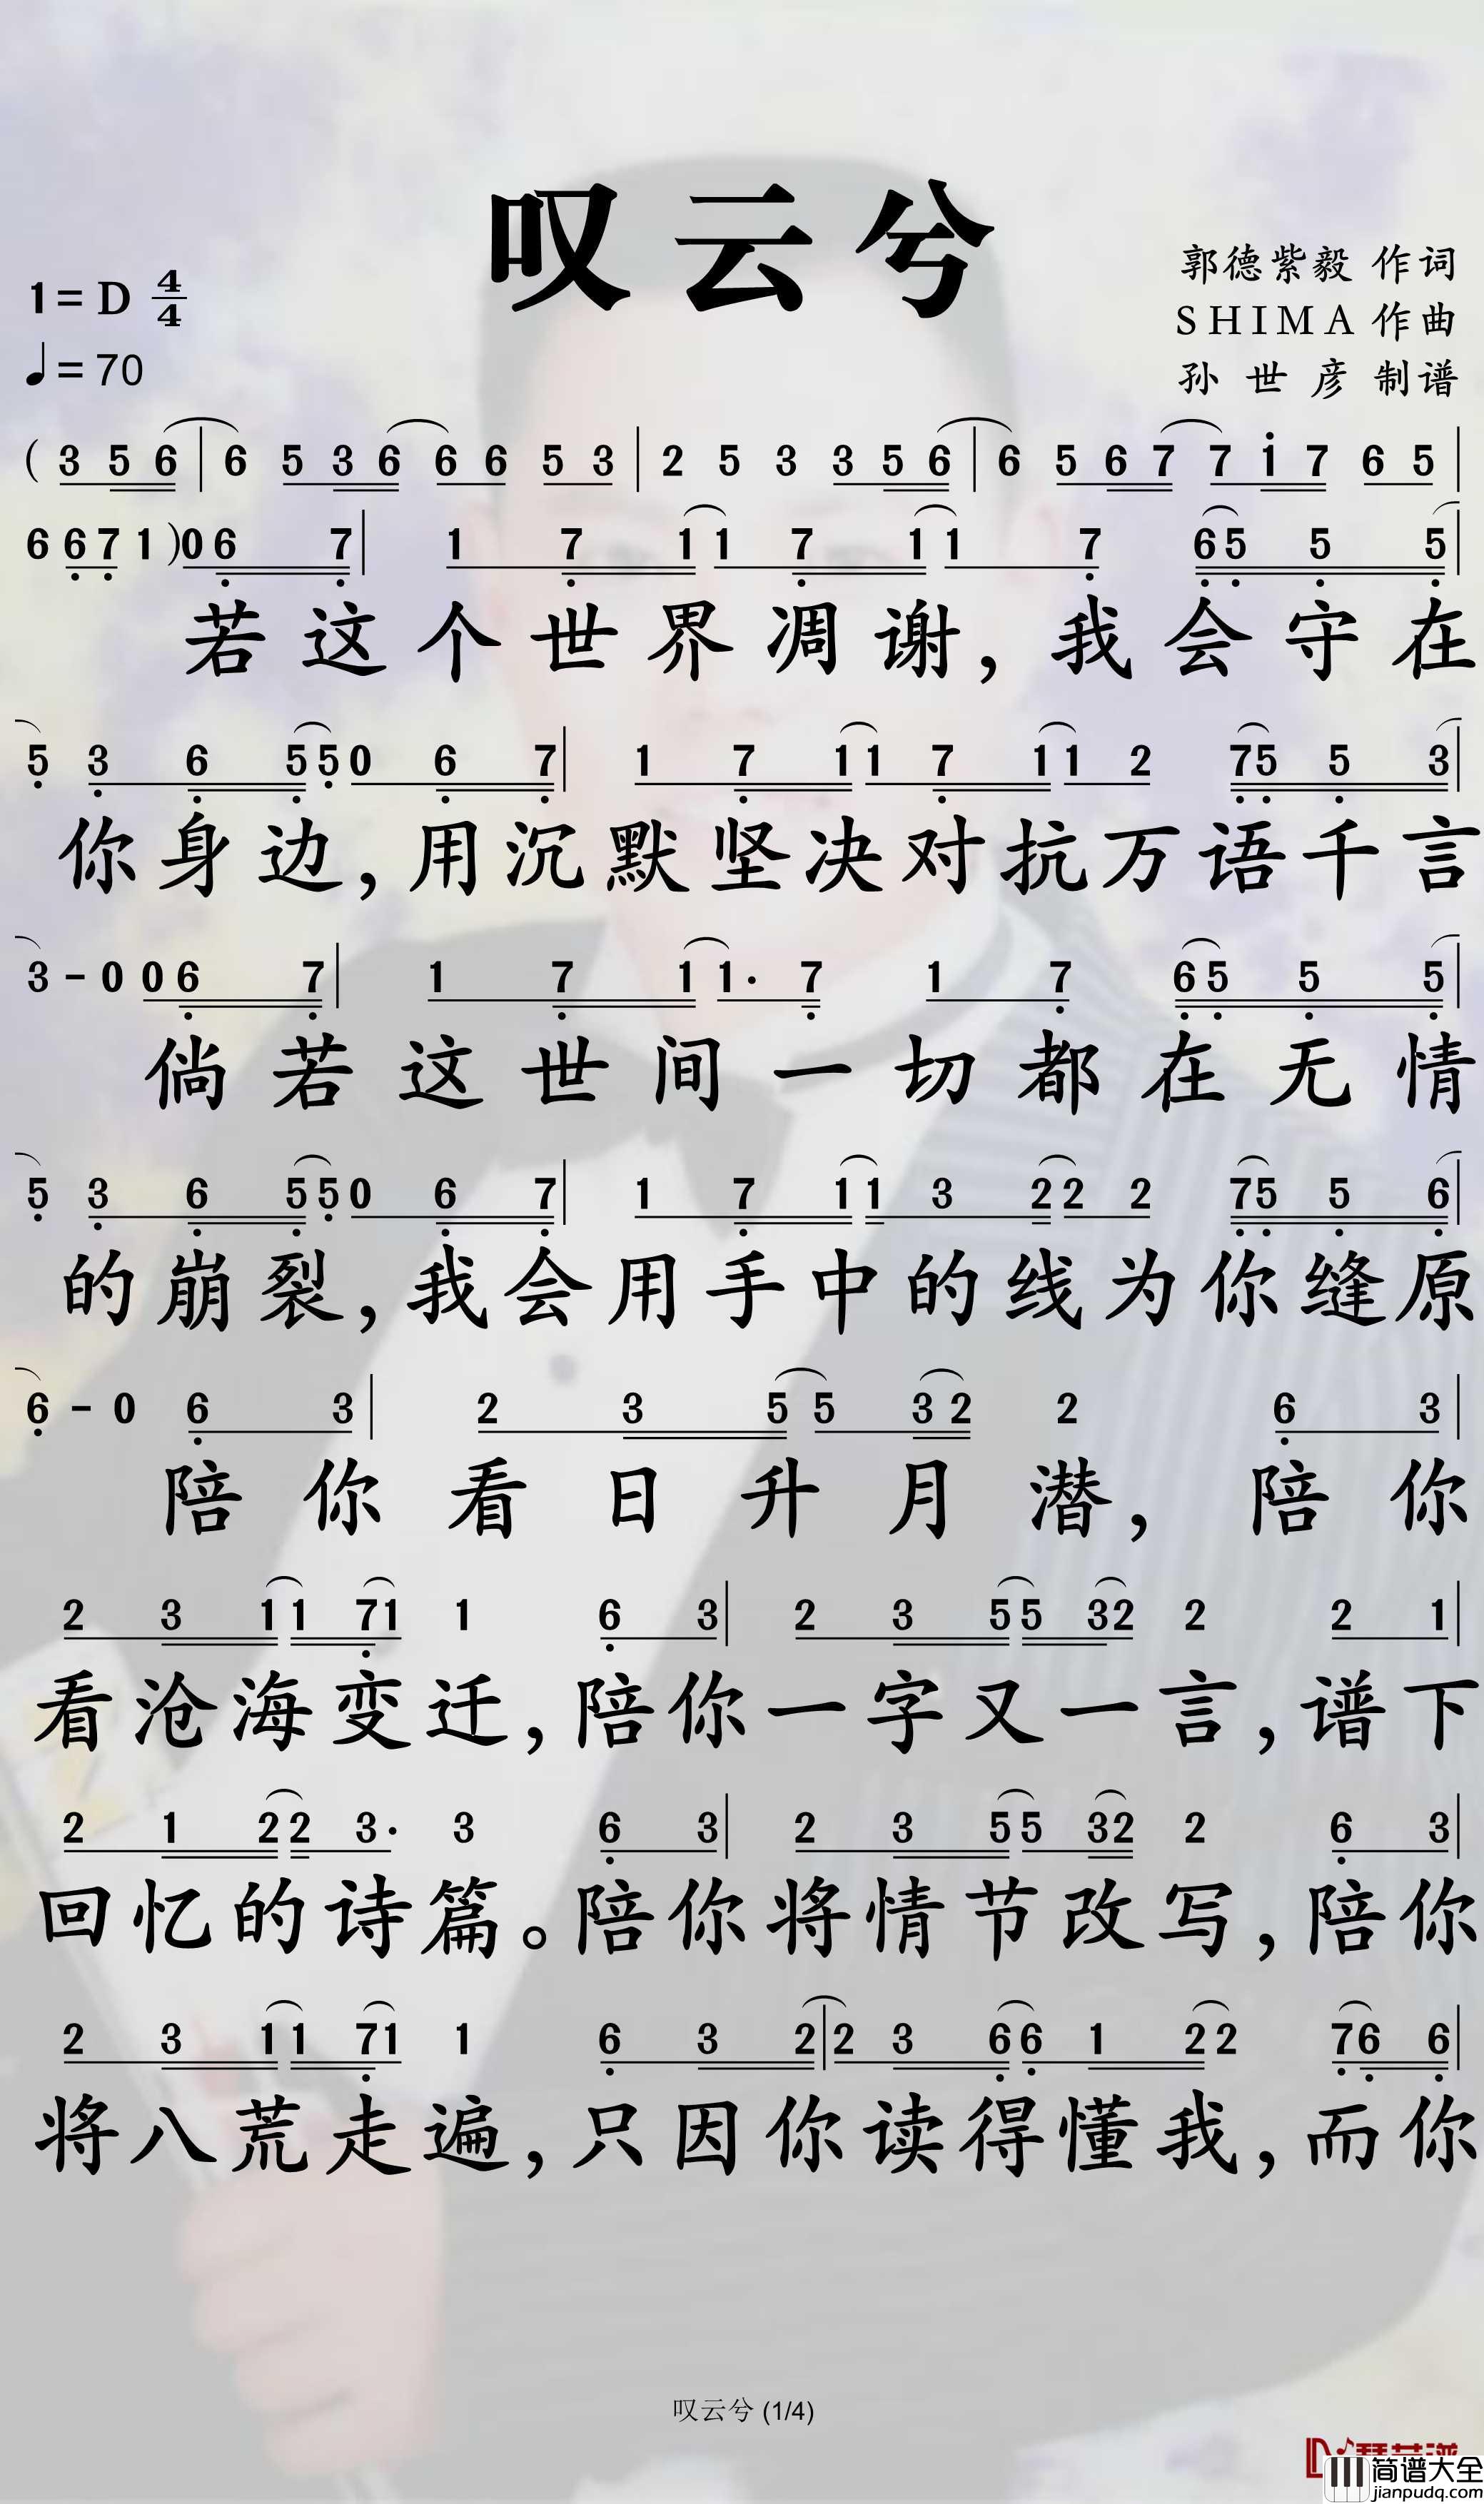 叹云兮
1=D 4/4
♩=70
郭德紫毅 作词
SHIMA 作曲
孙世彦 制谱
( 3 5 6 | 6 5 3 6 6 6 5 3 | 2 5 3 3 5 6 | 6 5 6 7 7 1 7 6 5 |
6 6 7 1 ) 0 6 7 | 1 7 1 1 7 1 1 7 6 5 5 5 |
若这个世界凋谢,我会守在
5 3 6 5 5 0 6 7 | 1 7 1 1 7 1 1 2 7 5 5 3 |
你身边,用沉默坚决对抗万语千言
3 - 0 0 6 7 | 1 7 1 1. 7 1 7 6 5 5 5 |
倘若这世间一切都在无情
5 3 6 5 5 0 6 7 | 1 7 1 1 3 2 2 2 7 5 5 6 |
的崩裂,我会用手中的线为你缝原
6 - 0 6 3 | 2 3 5 5 3 2 2 6 3 |
陪你看日升月潜,陪你
2 3 1 1 7 1 1 6 3 | 2 3 5 5 3 2 2 2 1 |
看沧海变迁,陪你一字又一言,谱下
2 1 2 2 3. 3 6 3 | 2 3 5 5 3 2 2 6 3 |
回忆的诗篇。陪你将情节改写,陪你
2 3 1 1 7 1 1 6 3 2 | 2 3 6 6 1 2 2 7 6 6 |
将八荒走遍,只因你读得懂我,而你
叹云兮 (1/4)
简谱大全
jianpudq.com